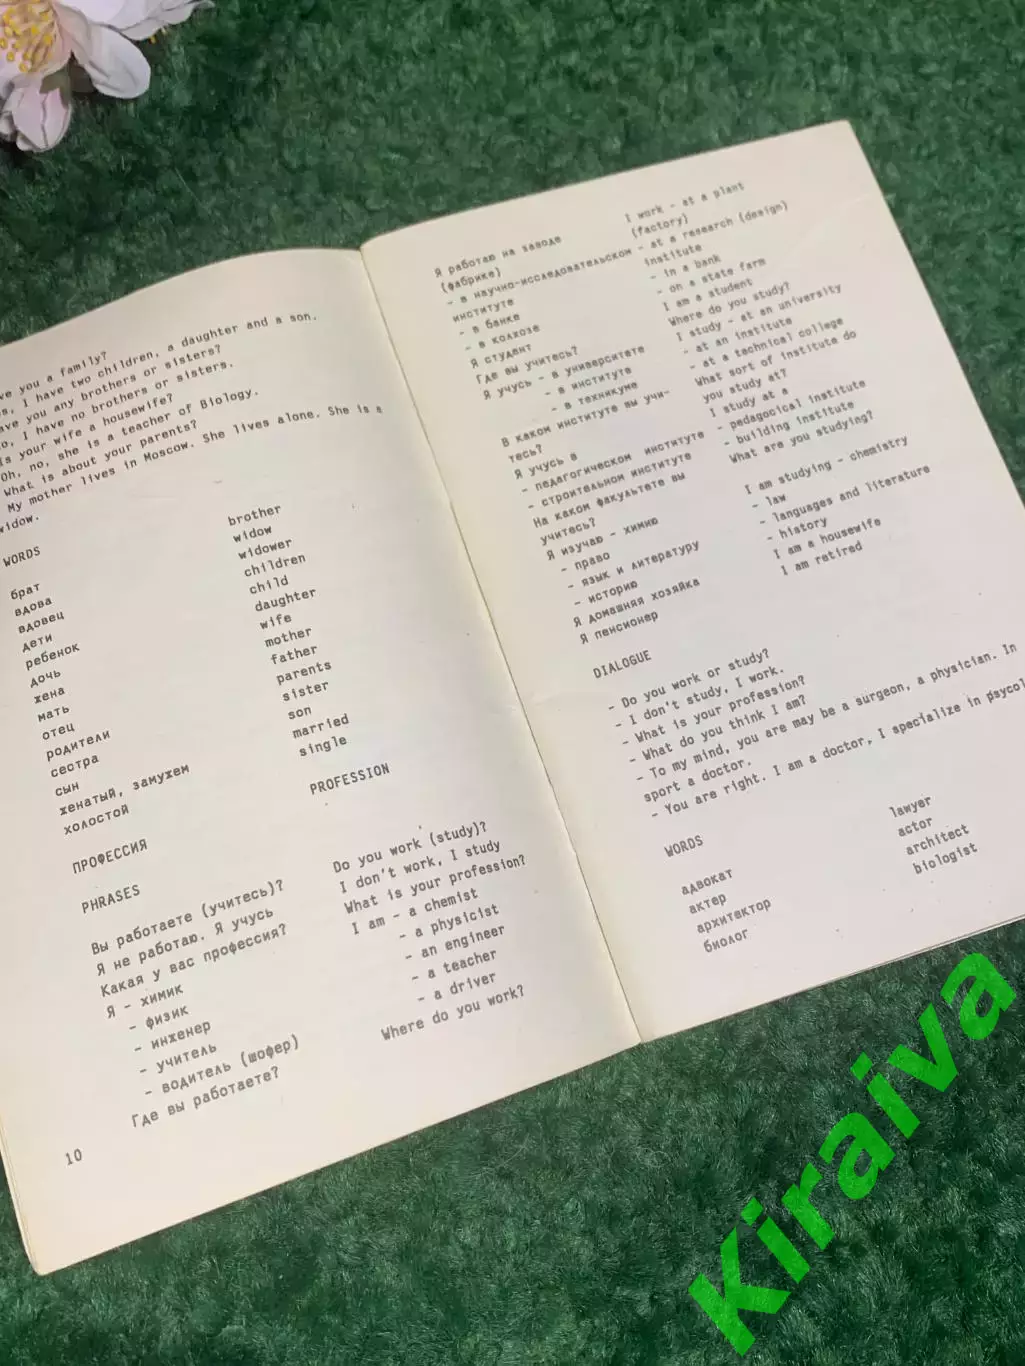 ve you a family?
s, I have two children, a daughter and a son.
ave you any brothers or sisters?
o, I have no brothers or sisters.
Is your wife a housewife?
Oh, no, she is a teacher of Biology.
What is about your parents?
My mother lives in Moscow. She lives alone. She is a
widow.
WORDS
брат brother
вдова widow
вдовец widower
дети children
ребенок child
дочь daughter
жена wife
мать mother
отец father
родители parents
сестра sister
сын son
женатый, замужем married
холостой single
ПРОФЕССИЯ PROFESSION
PHRASES
Вы работаете (учитесь)? Do you work (study)?
Я не работаю. Я учусь I don't work, I study
Какая у вас профессия? What is your profession?
Я - химик I am - a chemist
- физик - a physicist
- инженер - an engineer
- учитель - a teacher
- водитель (шофер) - a driver
Где вы работаете? Where do you work?
10
Я работаю на заводе I work - at a plant
(фабрике) (factory)
- в научно-исследовательском - at a research (design)
институте institute
- в банке - in a bank
- в колхозе - on a state farm
Я студент I am a student
Где вы учитесь? Where do you study?
Я учусь - в университете I study - at an university
- в институте - at an institute
- в техникуме - at a technical college
В каком институте вы учи- What sort of institute do
тесь? you study at?
Я учусь в I study at a
- педагогическом институте - pedagocical institute
- строительном институте - building institute
На каком факультете вы What are you studying?
учитесь?
Я изучаю - химию I am studying - chemistry
- право - law
- язык и литературу - languages and literature
- историю - history
Я домашняя хозяйка I am a housewife
Я пенсионер I am retired
DIALOGUE
- Do you work or study?
- I don't study, I work.
- What is your profession?
- What do you think I am?
- To my mind, you are may be a surgeon, a physician. In
sport a doctor.
- You are right. I am a doctor, I specialize in psycol
WORDS
адвокат lawyer
актер actor
архитектор architect
биолог biologist
Kiraiva